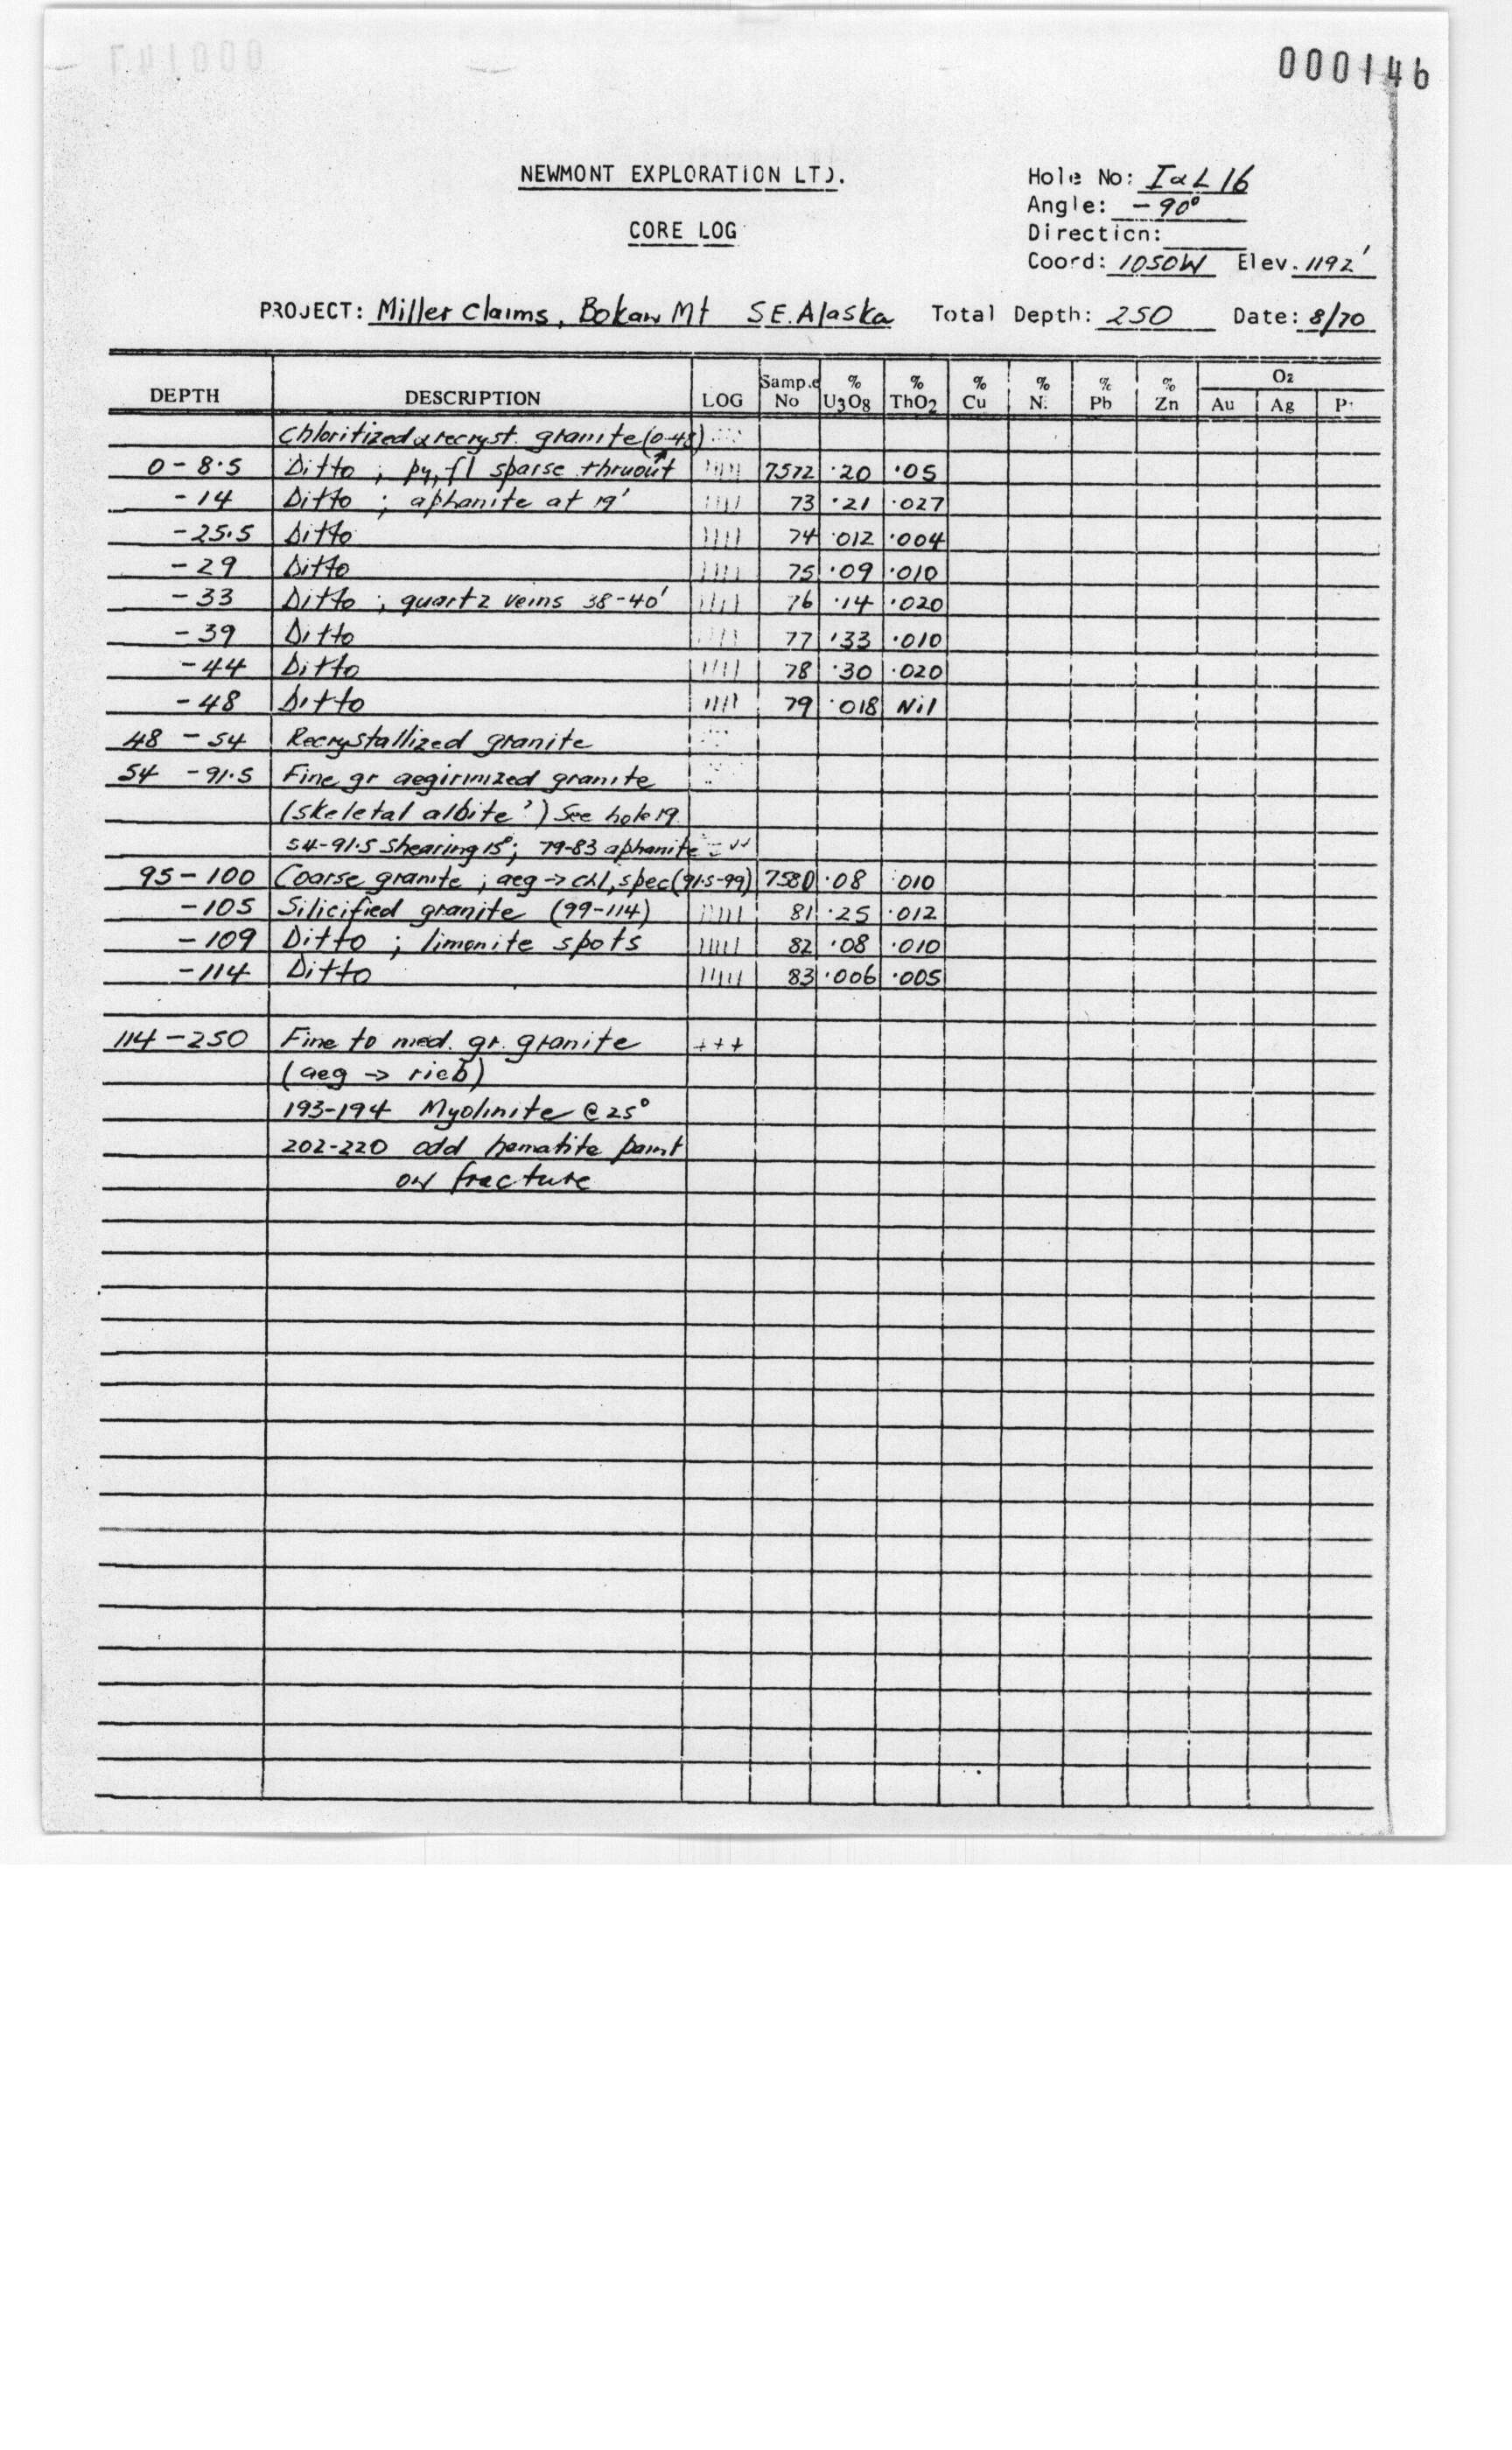 000146
NEWMONT EXPLORATION LTD.
CORE LOG
Hole No: I & L 16
Angle: -90°
Direction:
Coord: 1050W Elev. 1192'
PROJECT: Miller Claims, Bokan Mt SE. Alaska Total Depth: 250 Date: 8/70
DEPTH DESCRIPTION LOG Sample No % U3O8 % ThO2 % Cu % Ni % Pb % Zn Oz Au Ag Pt
Chloritized & recryst. granite (0-48)
0-8.5 Ditto ; py, fl sparse thruout 7572 .20 .05
-14 Ditto ; aphanite at 19' 73 .21 .027
-25.5 Ditto 74 .012 .004
-29 Ditto 75 .09 .010
-33 Ditto ; quartz veins 38-40' 76 .14 .020
-39 Ditto 77 .33 .010
-44 Ditto 78 .30 .020
-48 Ditto 79 .018 Nil
48 - 54 Recrystallized granite
54 - 91.5 Fine gr aegirinized granite
(skeletal albite ?) See hole 19.
54-91.5 shearing 15°; 79-83 aphanite
95-100 Coarse granite ; aeg → chl, spec (91.5-99) 7580 .08 .010
-105 Silicified granite (99-114) 81 .25 .012
-109 Ditto ; limonite spots 82 .08 .010
-114 Ditto 83 .006 .005
114-250 Fine to med. gr. granite +++
(aeg → rieb)
193-194 Myolinite @ 25°
202-220 odd hematite paint
on fracture